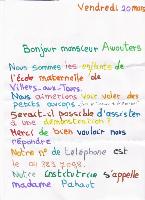 Vendredi 20 mars
Bonjour monsieur Awouters
Nous sommes les enfants de
l'école maternelle de
Villers-aux-Tours.
Nous aimerions voir voler des
petits avions
Serait-il possible d'assister
à une démonstration?
Merci de bien vouloir nous
répondre
Notre n° de téléphone est
le 04 383 7098.
Notre institutrice s'appelle
madame Pahaut